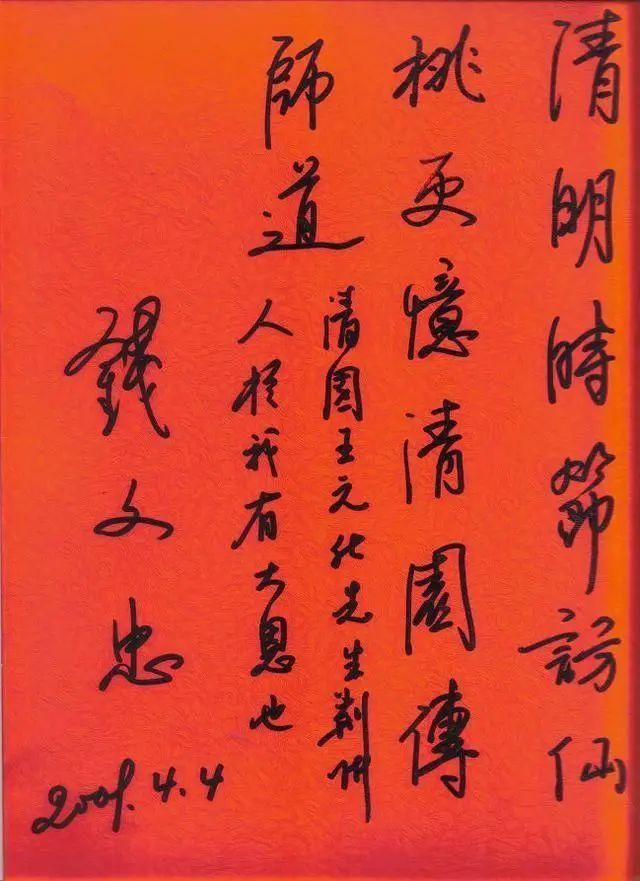 清明時節訪仙
桃更憶清園傳
師道
清園王元化先生荆州
人於我有大恩也
錢文忠
2009.4.4